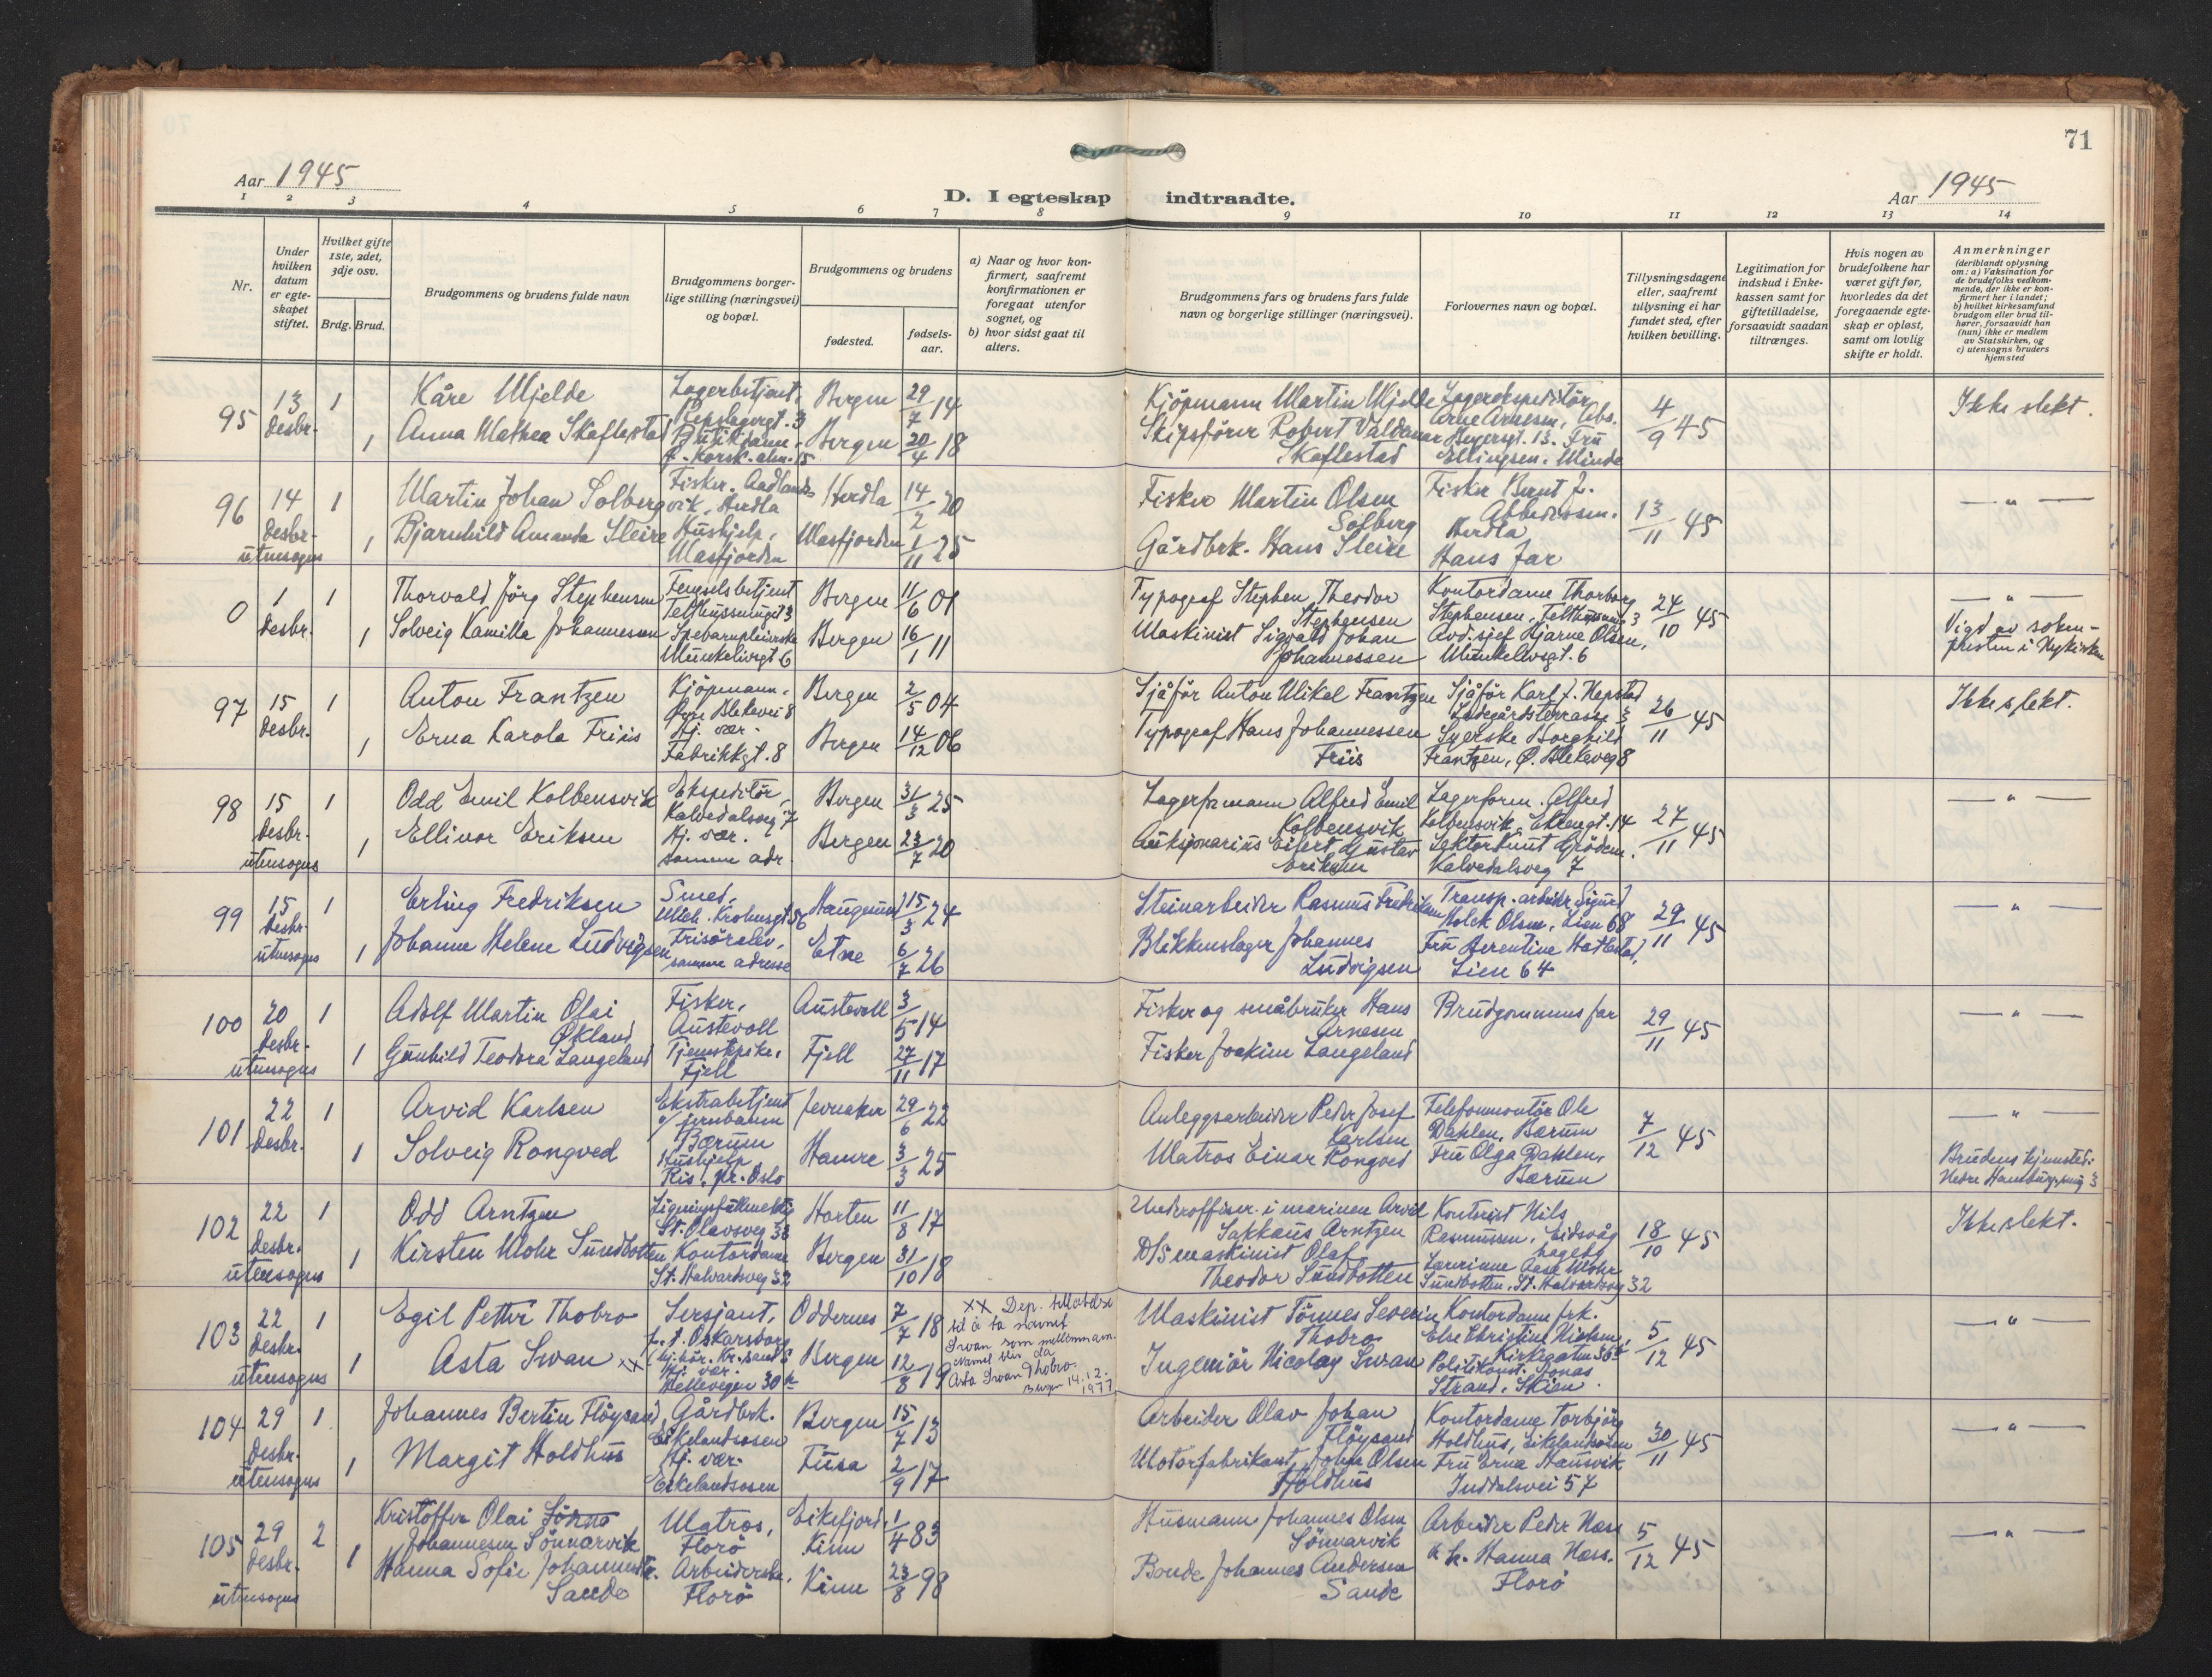 71
Aar 1945
Aar 1945
D. I egteskap indtraadte.
1 2 3 4 5 6 7 8 9 10 11 12 13 14
Nr.
Under hvilken datum er egteskapet stiftet.
Hvilket gifte 1ste, 2det, 3dje osv.
Brdg. Brud.
Brudgommens og brudens fulde navn
Brudgommens borgerlige stilling (næringsvei) og bopæl.
Brudgommens og brudens
fødested.
fødselsaar.
a) Naar og hvor konfirmert, saafremt konfirmationen er foregaat utenfor sognet, og
b) hvor sidst gaat til alters.
Brudgommens fars og brudens fars fulde navn og borgerlige stillinger (næringsvei).
Forlovernes navn og bopæl.
Tillysningsdagene eller, saafremt tillysning ei har fundet sted, efter hvilken bevilling.
Legitimation for indskud i Enkekassen samt for giftetilladelse, forsaavidt saadan tiltrænges.
Hvis nogen av brudefolkene har været gift før, hvorledes da det foregaaende egteskap er opløst, samt om lovlig skifte er holdt.
Anmerkninger
(deriblandt oplysning om: a) Vaksination for de brudefolks vedkommende, der ikke er konfirmert her i landet; b) hvilket kirkesamfund brudgom eller brud tilhører, forsaavidt han (hun) ikke er medlem av Statskirken, og c) utensogns bruders hjemsted
95 13 Desbr. 1 Kåre Mjelde Lagerbetjent, Repslagergt. 3 Bergen 29/7 14 Kjöpmann Martin Mjelde Lagerekspeditör Arne Arnesen, Abs. Beyersgt. 13. 4/9 45 Ikke slekt.
1 Anna Mathea Skaflestad Butikdame Bergen 20/4 18 Skipsförer Robert Valdemar Skaflestad Fru Ellingsen, Minde
96 14 Desbr. utensogns 1 Martin Johan Solberg Fisker, Herdla Herdla 14/2 20 Fisker Martin Olsen Solberg Fisker Bernt J. Herdla 13/11 45 — " —
1 Bjarnhild Amanda Sleire Hushjelp, Masfjorden Masfjorden 1/11 25 Gårdbrk. Hans Sleire Hans far
0 1 Desbr. 1 Thorvald Jörg Stephensen Fengselsbetjent Telthussmuget 3 Bergen 11/6 01 Typograf Stephen Theodor Stephensen Kontordame Thorborg Stephensen, Telthussmug 3 24/10 45 — " —
1 Solveig Kamilla Johannessen Spebarnpleierske Munkelivgt 6 Bergen 16/1 11 Maskinist Sigvald Johan Johannessen Avd. sjef Bjarne Olsen, Munkelivsgt. 6 Vigd av sokenpresten i Nykirken
97 15 Desbr. 1 Anton Frantzen Kjöpmann, Øvre Blekevei 8 Bergen 2/5 04 Sjåför Anton Mikal Frantzen Sjåför Karl J. Hopstad Ladegårdsterrasse 3 26/11 45 Ikke slekt.
1 Erna Karola Friis Hj. vær. Fabrikkgt. 8 Bergen 14/12 06 Typograf Hans Johannessen Friis Syerske Borghild Frantzen, Ø. Blekeveg 8
98 15 Desbr. utensogns 1 Odd Emil Kolbensvik Ekspeditör, Kalvedalsveg 7 Bergen 31/3 25 Lagerformann Alfred Emil Kolbensvik Lagerform. Alfred Kolbensvik, Engengt. 14 27/11 45 — " —
1 Ellinor Eriksen Hj. vær. samme adr. Bergen 23/7 20 Auksjonarius Eifert Gustav Eriksen Lektor Knut Grödem. Kalvedalsveg 7
99 15 Desbr. utensogns 1 Erling Fredriksen Smed, Mich. Krohnsgt 56 Haugesund 15/3 24 Steinarbeider Rasmus Fredriksen Transp. arbeider Sigurd Holck Olsen, Lien 68 29/11 45 — " —
1 Johanne Helene Ludvigsen Frisörelev, samme adresse Etne 6/7 26 Blikkenslager Johannes Ludvigsen Fru Berentine Hatlestad, Lien 64
100 20 Desbr. utensogns 1 Adolf Martin Olai Økland Fisker, Austevoll Austevoll 3/5 14 Fisker og småbruker Hans Arnesen Brudgommens far 29/11 45 — " —
1 Gunhild Teodora Langeland Tjenestpike, Fjell Fjell 27/11 17 Fisker Joakim Langeland
101 22 Desbr. 1 Arvid Karlsen Ekstrabetjent v/ jernbanen Bærum Jevnaker 29/6 22 Anleggsarbeider Peder Josef Karlsen Telefonmontör Ole Dahlen, Bærum 7/12 45 — " —
1 Solveig Rongved Hushjelp Ris, pr. Oslo Hamre 3/3 25 Matros Einar Rongved Fru Olga Dahlen, Bærum Brudens hjemsted: Nedre Hamburgersmug 3
102 22 Desbr. utensogns 1 Odd Arntzen Ligningsfullmektig St. Olavsveg 38 Horten 11/8 17 Underoffiser i marinen Arvid Sakkaus Arntzen Kontorist Nils Rasmussen, Eidsvåg hageby 18/10 45 Ikke slekt.
1 Kirsten Mohr Sundbotten Kontordame St. Halvardsveg 32 Bergen 31/10 18 D/S maskinist Olaf Theodor Sundbotten Lærerinne Aase Mohr Sundbotten, St. Halvardsveg 32
103 22 Desbr. utensogns 1 Egil Petter Thobro Sersjant, p.t. Oskarsborg (hj.hör. Kr.sand S Oddernes 7/7 18 Maskinist Tönnes Severin Thobro Kontordame frk. Else Christine Nielsen, Kirkegaten 36 5/12 45 — " —
1 Asta Svan xx Hj. vær. Hellevegen 30 Bergen 12/8 19 Ingeniör Nicolay Svan Politikonst. Jonas Strand, Skien.
xx Dep. tillatelse til å ta navnet Svan som mellomnavn. Navnet blir da Asta Svan Thobro. Bergen 14.12.1977
104 29 Desbr. utensogns 1 Johannes Bertin Flöysand, Gårdbrk. Eikelandsosen Bergen 15/7 13 Arbeider Olav Johan Flöysand Kontordame Torbjörg Holdhus, Eikelandsosen 30/11 45 — " —
1 Margit Holdhus Hj. vær. Eikelandsosen Fusa 2/9 17 Motorfabrikant, Johan Olsen Holdhus Fru Erna Hausvik Inddalsvei 57
105 29 Desbr. utensogns 2 Kristoffer Olai Johannesen Sönnarvik Matros, Florö Eikefjord, Kinn 1/4 83 Husmann Johannes Olsen Sönnarvik Arbeider Peder Næss 5/12 45 — " —
1 Hanna Sofie Johannesdtr. Sande Arbeiderske, Florö Kinn 23/8 98 Bonde Johannes Andersen Sande Hanna Næss. Florö